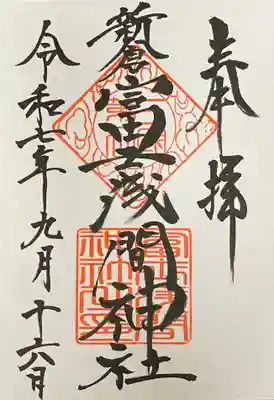 奉拝
新倉富士浅間神社
令和七年九月十六日